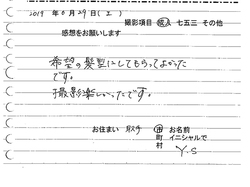 2019年6月29日(土)
撮影項目 成人 七五三 その他
感想をお願いします
希望の髪型にしてもらってよかった
です。
撮影楽しかったです。
お住まい 取手 市町村 お名前 イニシャルで
Y.S